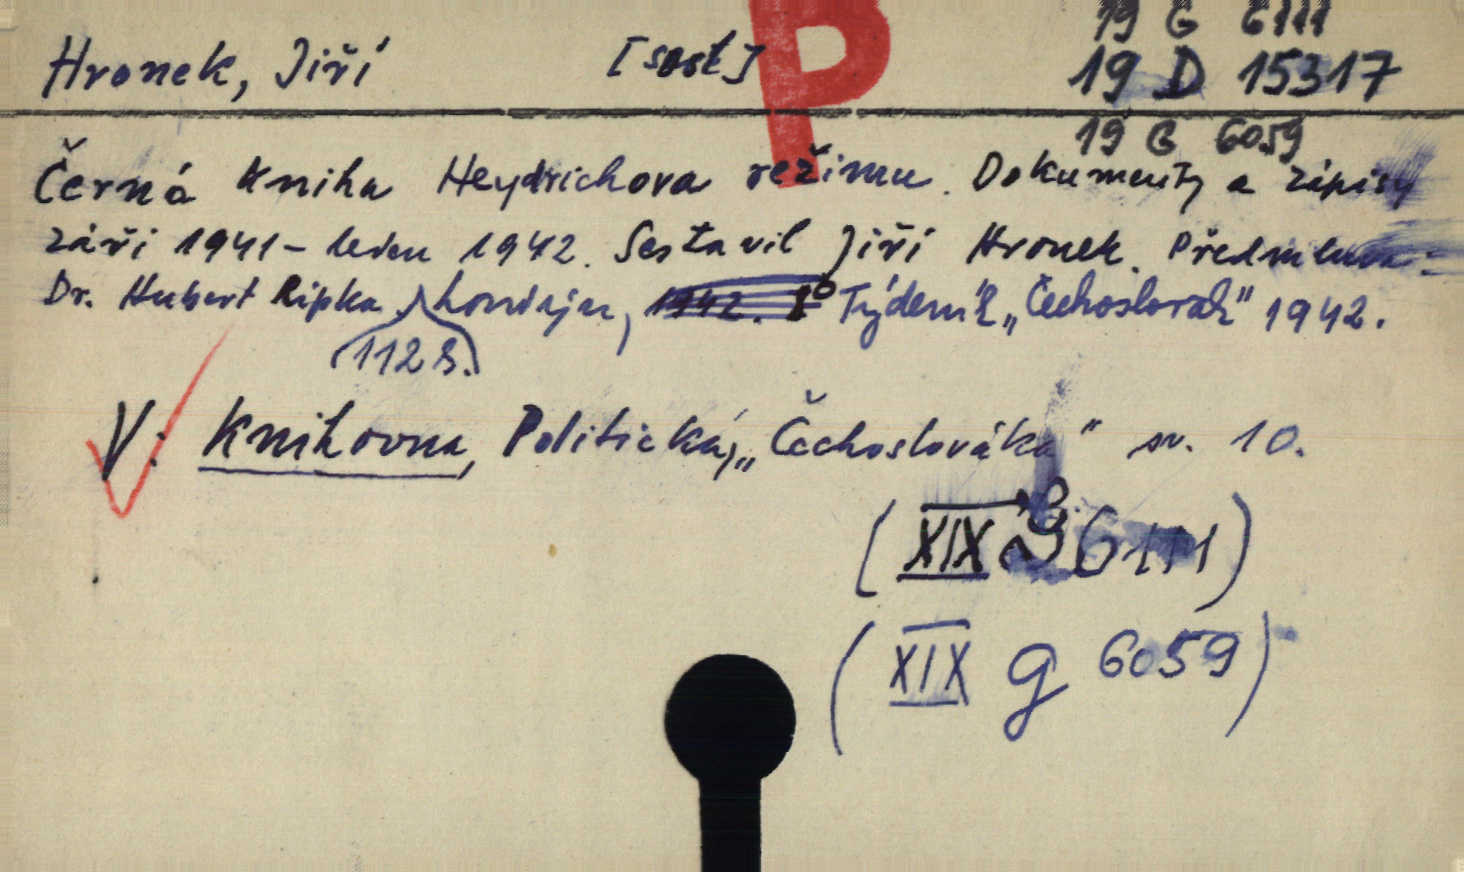 19 G 6111
Hronek, Jiří [sest] P 19 D 15317
19 G 6059
Černá kniha Heydrichova režimu. Dokumenty a zápisy
září 1941 - leden 1942. Sestavil Jiří Hronek. Předmluva:
Dr. Hubert Ripka. Londýn, 1942. 8° Týdeník „Čechoslovák" 1942.
112 s.
V: Knihovna, Politická, „Čechoslováka" sv. 10.
(XIX G 6111)
(XIX g 6059)